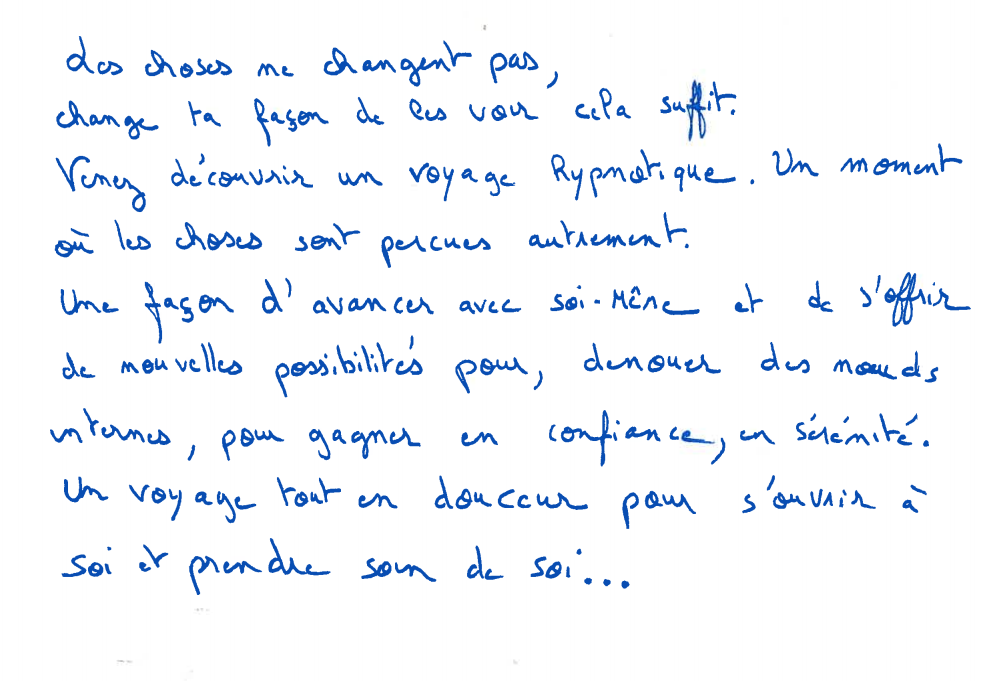 Les choses ne changent pas,
change ta façon de les voir cela suffit.
Venez découvrir un voyage hypnotique. Un moment
où les choses sont percues autrement.
Une façon d'avancer avec soi-même et de s'offrir
de nouvelles possibilités pour, denouer des noeuds
internes, pour gagner en confiance, en sérénité.
Un voyage tout en douceur pour s'ouvrir à
soi et prendre soin de soi...